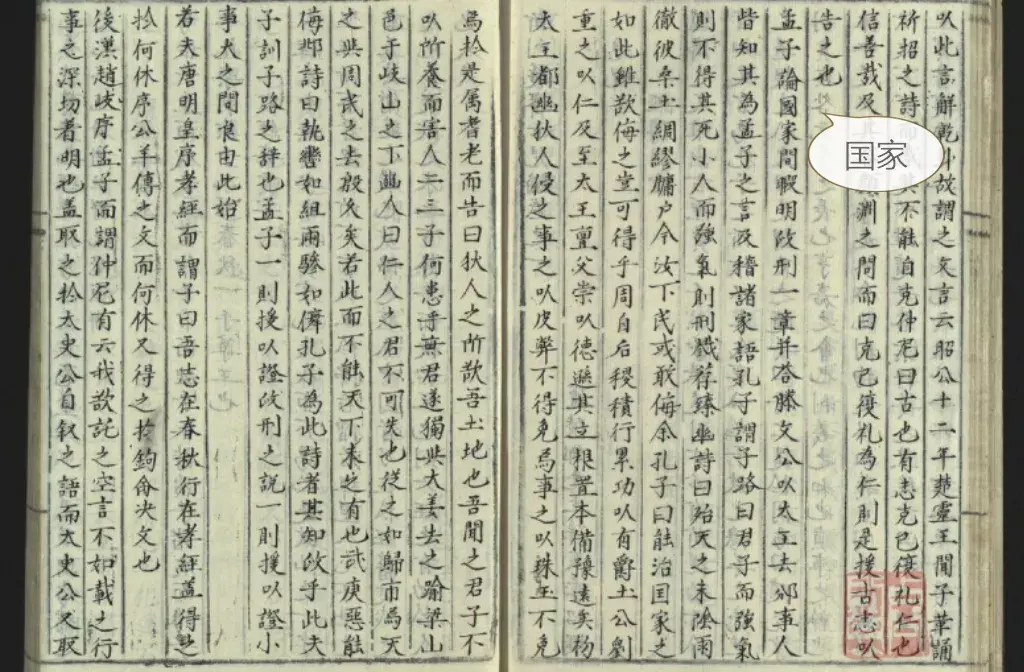 以此言解乾卦故謂之文言云昭公十二年楚靈王聞子革誦
祈招之詩而 其不能自克仲尼曰古也有志克已復礼仁也
信善哉及 顔渊之問而曰克已復礼為仁則是援古志以
告之也
国家
孟子論國家閒暇明政刑一章并荅滕文公以太王去邠事人
皆知其為孟子之言及稽諸家語孔子謂子路曰君子而強氣
則不得其死小人而強氣則刑戮荐臻豳詩曰殆天之未陰雨
徹彼桑土綢繆牖户今汝下民或敢侮余孔子曰能治国家之
如此雖欲侮之豈可得乎周自后稷積行累功以有爵土公劉
重之以仁及至太王亶父崇以德讓其立根置本備豫遠矣初
太王都豳狄人侵之事之以皮幣不得免焉事之以珠玉不免
焉扵是属耆老而告曰狄人之所欲吾土地也吾聞之君子不
以所養而害人二三子何患乎無君遂獨與大姜去之踰梁山
邑于岐山之下豳人曰仁人之君不可失也從之如歸市焉天
之與周武之去殷久矣若此而不能天下未之有也武庚惡能
侮邶詩曰執轡如組兩驂如儛孔子為此詩者其知政乎此夫
子訓子路之辞也孟子一則援以證政刑之説一則援以證小
事大之間良由此始
若夫唐明皇序孝經而謂子曰吾志在春秋行在孝經盖得之
扵何休序公羊傳之文而何休又得之扵鉤命决文也
後漢趙岐序孟子而謂仲尼有云我欲託之空言不如載之行
事之深切着明也盖取之扵太史公自叙之語而太史公又取